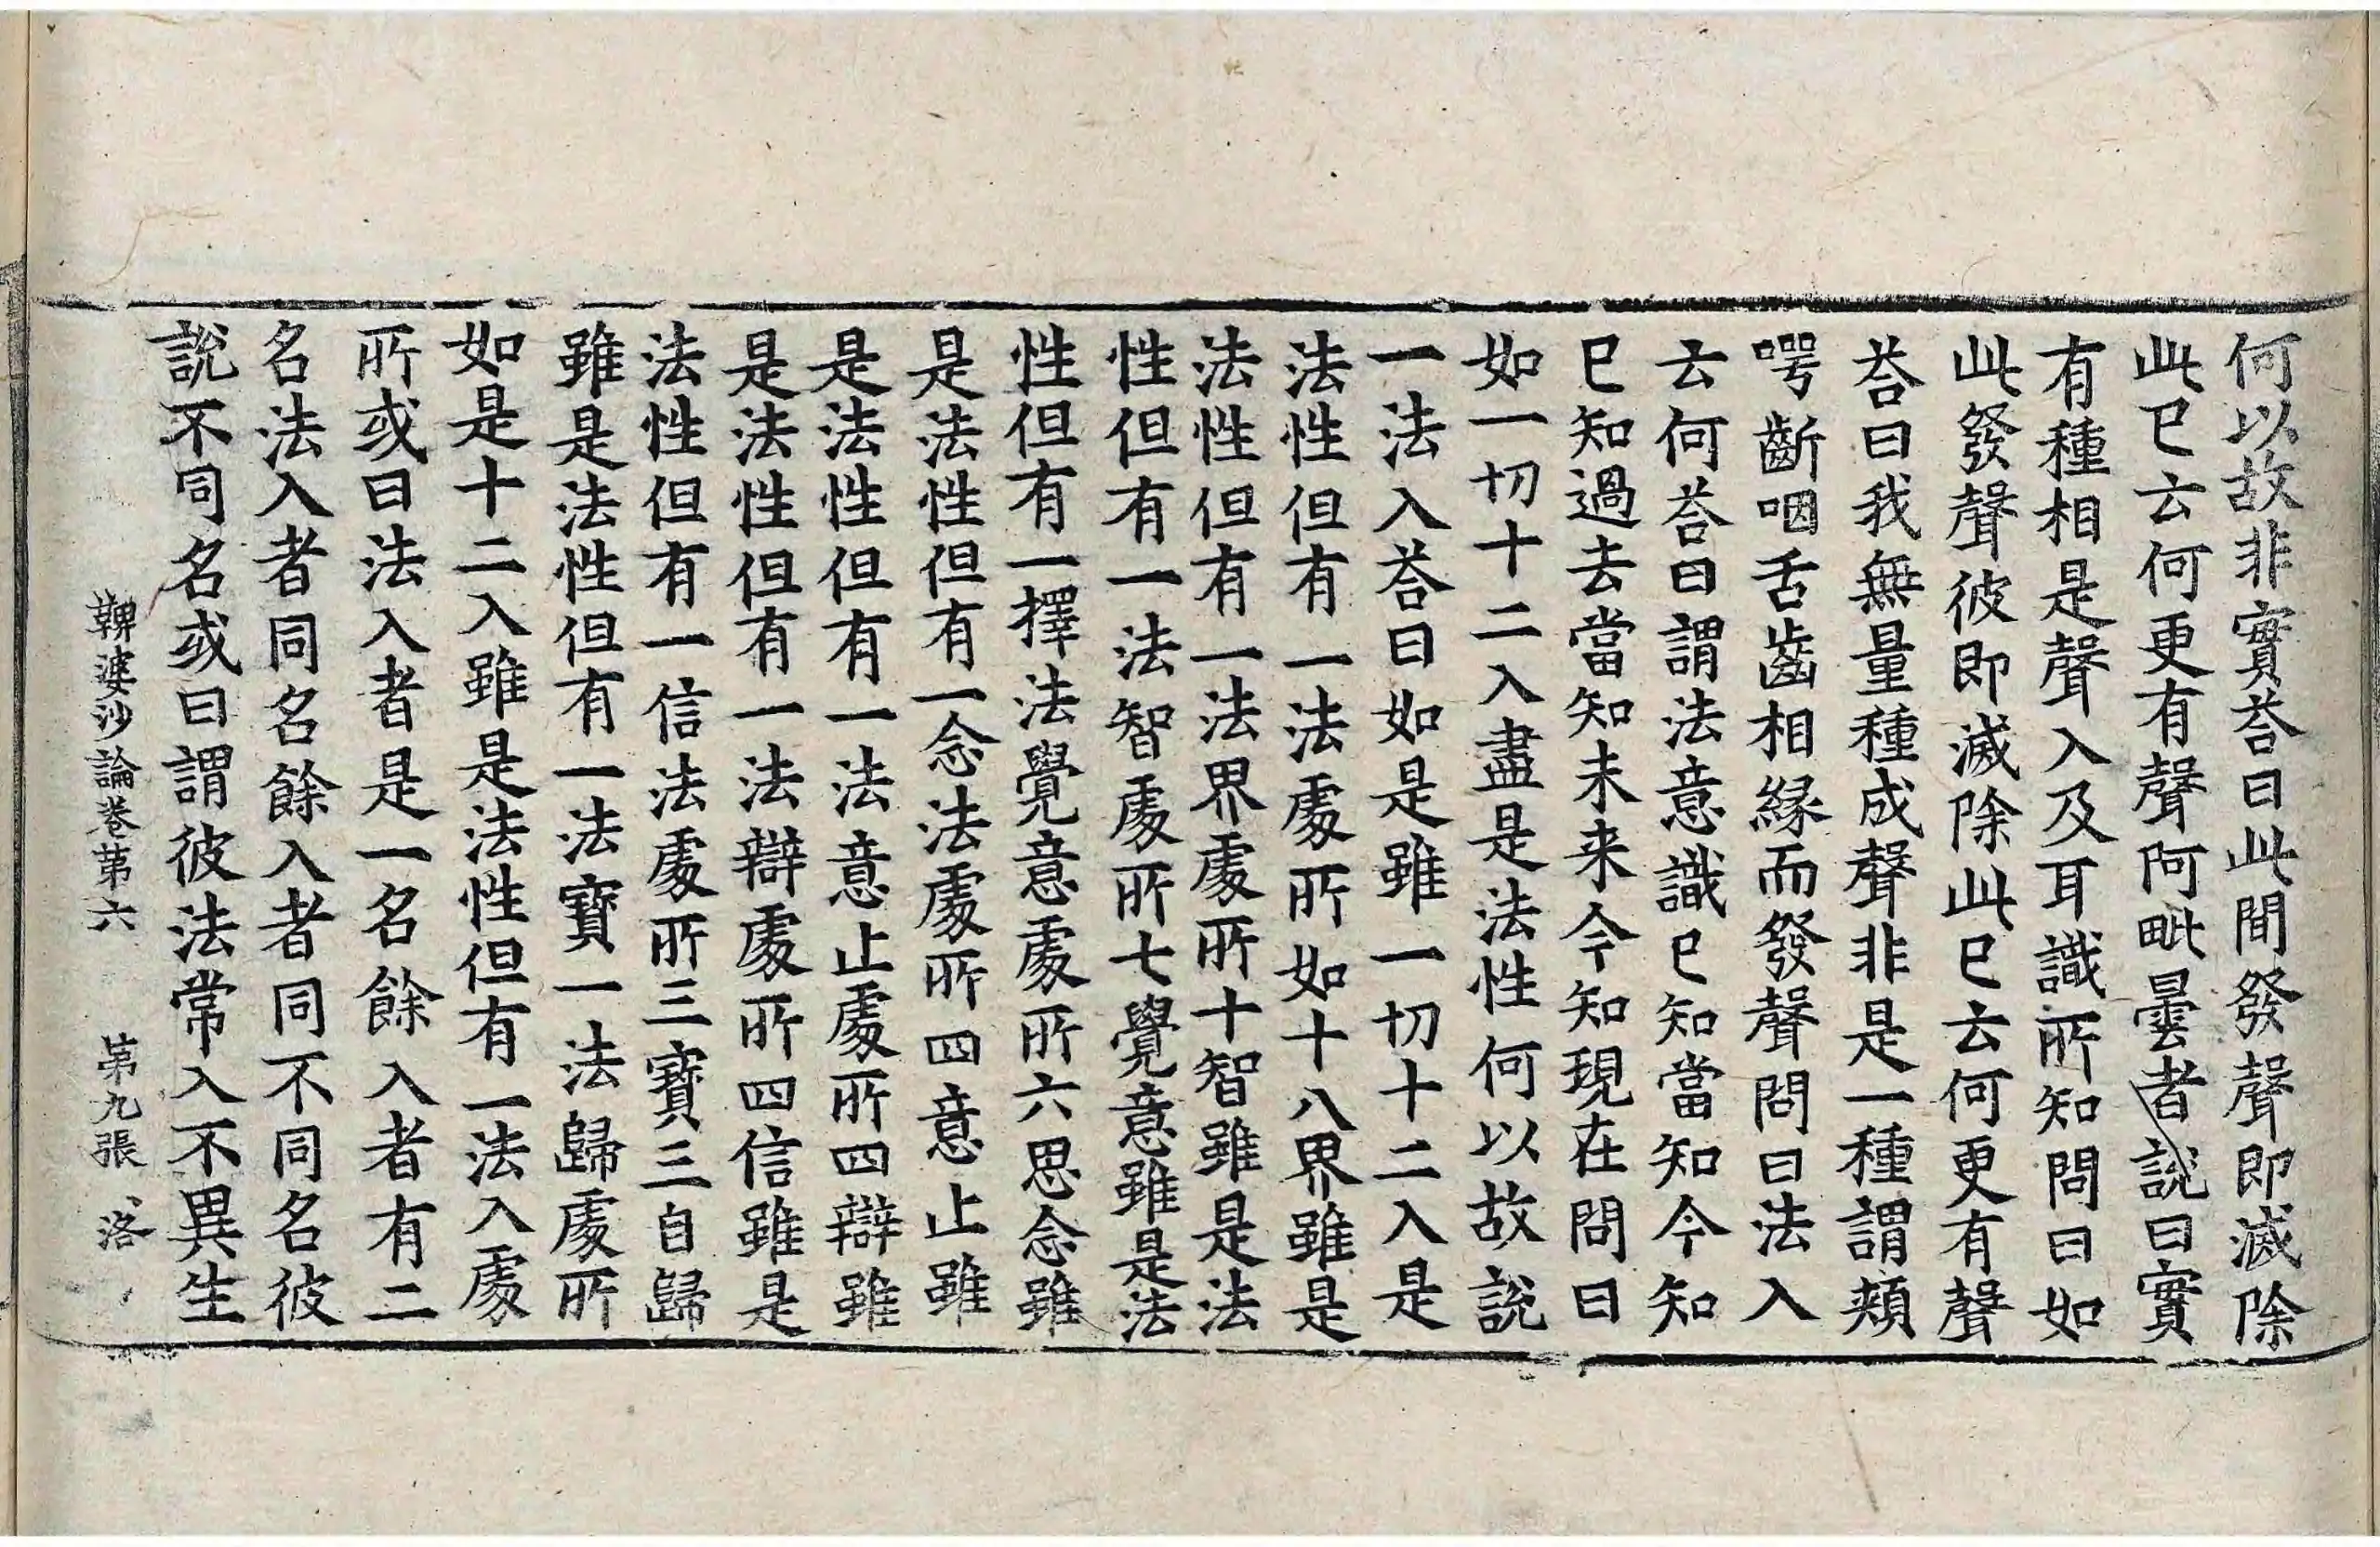 何以故非實荅曰此間發聲即滅除
此已云何更有聲阿毗曇者說曰實
有種相是聲入及耳識所知問曰如
此發聲彼即滅除此已云何更有聲
荅曰我無量種成聲非是一種謂頰
㗁齗咽舌齒相緣而發聲問曰法入
云何荅曰謂法意識已知當知今知
已知過去當知未來今知現在問曰
如一切十二入盡是法性何以故說
一法入荅曰如是雖一切十二入是
法性但有一法處所如十八界雖是
法性但有一法界處所十智雖是法
性但有一法智處所七覺意雖是法
性但有一擇法覺意處所六思念雖
是法性但有一念法處所四意止雖
是法性但有一法意止處所四辯雖
是法性但有一法辯處所四信雖是
法性但有一信法處所三寶三自歸
雖是法性但有一法寶一法歸處所
如是十二入雖是法性但有一法入處
所或曰法入者是一名餘入者有二
名法入者同名餘入者同不同名彼
說不同名或曰謂彼法常入不異生
鞞婆沙論卷第六 第九張 洛